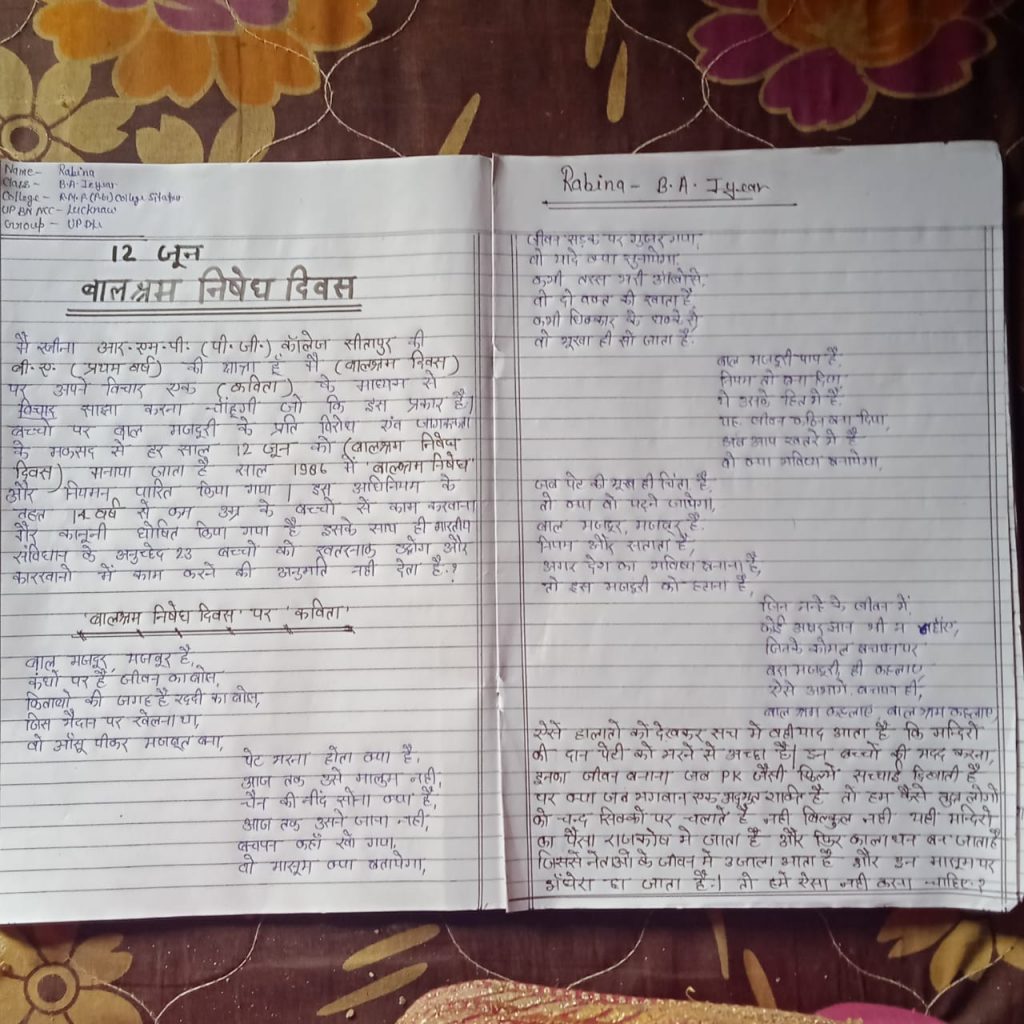 Name- Rabina
Class- B.A. Iyear
College- R.M.P.(P.G.) College Sitapur
UP BN NCC- Lucknow
Group-
12 जून
बालश्रम निषेध दिवस
मै रबीना आर.एम.पी. (पी.जी.) कॉलेज सीतापुर की
बी.ए. (प्रथम वर्ष) की छात्रा हूँ मै (बालश्रम दिवस)
पर अपने विचार एक (कविता) के माध्यम से
विचार साझा करना चाहूंगी जो कि इस प्रकार है।
बच्चो पर बाल मजदूरी के प्रति विरोध एंव जागरूकता
के मकसद से हर साल 12 जून को (बालश्रम निषेध
दिवस) मनाया जाता है साल 1986 में 'बालश्रम निषेध'
और नियमन पारित किया गया। इस अधिनियम के
तहत 14 वर्ष से कम उम्र के बच्चो से काम करवाना
गैर कानूनी घोषित किया गया है इसके साथ ही भारतीय
संविधान के अनुच्छेद 23 बच्चो को खतरनाक उद्योग और
कारखानो में काम करने की अनुमति नही देता है.?
'बालश्रम निषेध दिवस' पर 'कविता'
बाल मजदूर, मजबूर है,
कंधों पर है जीवन का बोझ,
किताबो की जगह है रददी का बोझ,
जिस मैदान पर खेलना था,
वो आँसू पीकर मजबूत बना,
पेट भरना होता क्या है,
आज तक उसे मालूम नही,
चैन की नींद सोना क्या है,
आज तक उसने जाना नही,
बचपन कहाँ खो गया,
वो मासूम क्या बतायेगा,
Rabina- B.A. Iyear
जीवन सड़क पर गुजर गया,
वो यादे क्या सुनायेगा,
कभी तरस भरी आँखो से,
वो दो वक्त की खाता है,
कभी धिक्कार के धक्के से,
वो भूखा ही सो जाता है.
बाल मजदूरी पाप है.
नियम तो बना दिया
ये उनके हित में है.
यह जीवन कठिन बना दिया,
अब आप खतरे में है
वो क्या भविष्य बनायेगा,
जब पेट की भूख ही चिंता है.
तो क्या वो पढ़ने जायेगा,
बाल मजदूर, मजबूर है.
नियम और सताता है,
अगर देश का भविष्य बनाना है,
तो इस मजदूरी को हटाना है,
जिन नन्हे के जीवन में,
कोई अक्षर ज्ञान भी न
जिनके कोमल बचपन पर
बस मजदूरी, ही कहलाए
ऐसे अभागे बचपन ही,
बाल श्रम कहलाए, बाल श्रम कहलाए,
ऐसें हालातो को देखकर सच मे वही याद आता है कि मन्दिरो
की दान पेटी को भरने से अच्छा है। इन बच्चो की मदद करना,
इनका जीवन बनाना जब PK जैसी फिल्मे सच्चाई दिखाती है
पर क्या जब भगवान एक अदभुत शक्ति है तो हम कैसे लोगो
को चन्द सिक्को पर चलाते है नही बिल्कुल नही यही मन्दिरो
का पैसा राजकोष में जाता है और फिर कालाधन बन जाता है
जिससे नेताओ के जीवन में उजाला आता है और इन मासूम पर
अंधेरा छा जाता है.। तो हमे ऐसा नही करना चाहिए.?